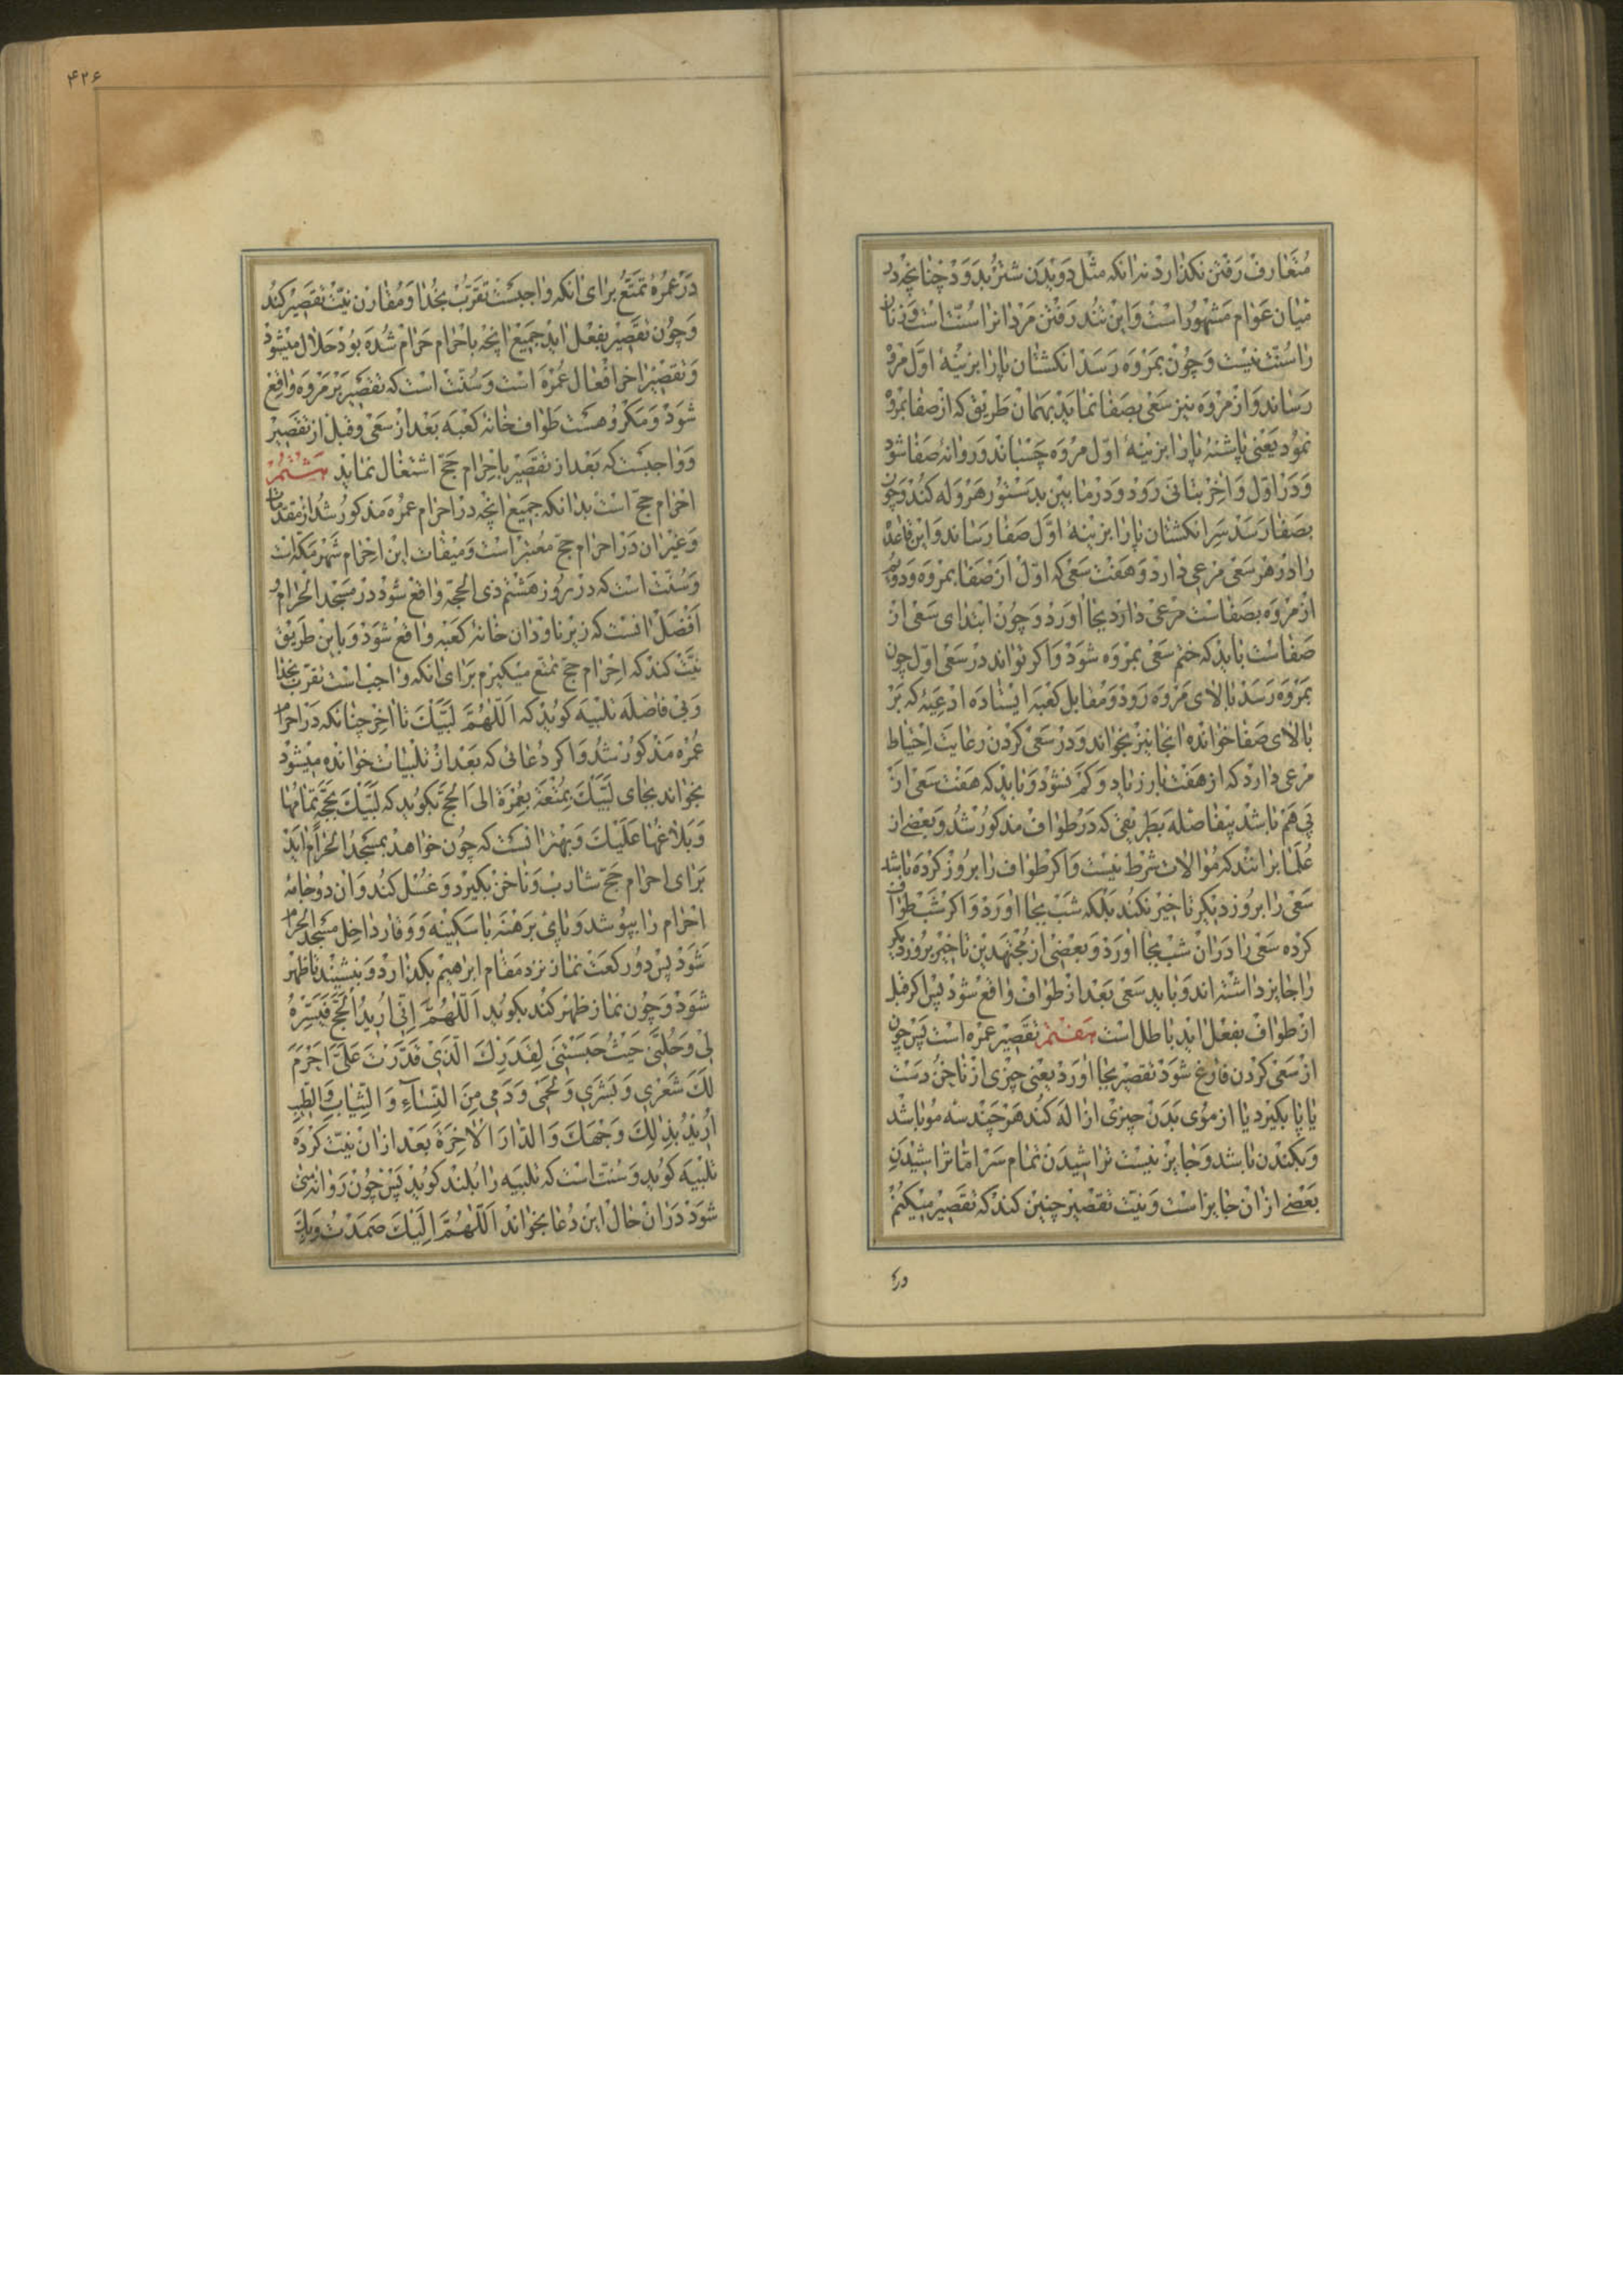 متعارف رفتن نکذارد نه انکه مثل دویدن شتر بدود چنانچه در
میان عوام مشهور است و این تند رفتن مردانرا سنت است و زنان
را سنت نیست و چون بمروه رسد انکشتان پا را بزینهٔ اول مروه
رساند و از مروه نیز سعی بصفا نماید بهمان طریق که از صفا بمروه
نمود یعنی پاشنهٔ پا را بزینهٔ اول مروه چسباند و روانهٔ صفا شود
و در اول و اخر بتانی رود و در ما بین بدستور هروله کند و چون
بصفا رسد سر انکشتان پا را بزینهٔ اول صفا رساند و این قاعده
را در هر سعی مرعی دارد و هفت سعی که اول از صفا بمروه و دویم
از مروه بصفاست مرعی دارد بجا اورد و چون ابتدای سعی از
صفاست باید که ختم سعی بمروه شود و اکر تواند در سعی اول چون
بمروه رسد بالای مروه رود و مقابل کعبه ایستاده ادعیهٔ که بر
بالای صفا خوانده انجا نیز بخواند و در سعی کردن رعایت احتیاط
مرعی دارد که از هفت بار زیاد و کم نشود و باید که هفت سعی از
پی هم باشد بیفاصله بطریقی که در طواف مذکور شد و بعضی از
علما برانند که موالات شرط نیست و اکر طواف را بروز کرده باشد
سعی را بروز دیکر تاخیر نکند بلکه شب بجا اورد و اکر شب طواف
کرده سعی را دران شب بجا اورد و بعضی از مجتهدین تاخیر بروز دیکر
را جایز داشته اند و باید سعی بعد از طواف واقع شود پس اکر قبل
از طواف بفعل اید باطل است هفتم تقصیر عمره است پس چون
از سعی کردن فارغ شود تقصیر بجا اورد یعنی چیزی از ناخن دست
یا پا بکیرد یا از موی بدن چیزی ازاله کند هر چند سه مو باشد
و بکندن باشد و جایز نیست تراشیدن تمام سر اما تراشیدن
بعضی ازان جایز است و نیت تقصیر چنین کند که تقصیر میکنم
۴۲۶
در عمرهٔ تمتع برای انکه واجبست تقرب بخدا و مقارن نیت تقصیر کند
و چون تقصیر بفعل اید جمیع انچه باحرام حرام شده بود حلال میشود
و تقصیر اخر افعال عمره است و سنت است که تقصیر بر مروه واقع
شود و مکروهست طواف خانهٔ کعبه بعد از سعی و قبل از تقصیر
و واجبست که بعد از تقصیر باحرام حج اشتغال نماید هشتم
احرام حج است بدانکه جمیع انچه در احرام عمره مذکور شد از مقدمات
و غیر ان در احرام حج معتبر است و میقات این احرام شهر مکه است
و سنت است که در روز هشتم ذی الحجه واقع شود در مسجد الحرام و
افضل انست که زیر ناودان خانهٔ کعبه واقع شود و باین طریق
نیت کند که احرام حج تمتع میکیرم برای انکه واجب است تقرب بخدا
و بی فاصله تلبیه کوید که اللهم لبیک تا اخر چنانکه در احرام
عمره مذکور شد و اکر دعائی که بعد از تلبیات خوانده میشود
بخواند بجای لبیک بمتعة بعمرة الی الحج بکوید که لبیک بحجة تمامها
و بلاغها علیک و بهتر انست که چون خواهد بمسجد الحرام اید
برای احرام حج شارب و ناخن بکیرد و غسل کند و ان دو جامهٔ
احرام را بپوشد و پای برهنه با سکینه و وقار داخل مسجد الحرام
شود پس دو رکعت نماز نزد مقام ابراهیم بکذارد و بنشیند تا ظهر
شود و چون نماز ظهر کند بکوید اللهم انی ارید الحج فیسره
لی و حلنی حیث حبستنی لقدرک الذی قدرت علی احرم
لک شعری و بشری و لحمی و دمی من النسآء و الثیاب و الطیب
ارید بذلک وجهک و الدار الاخرة بعد ازان نیت کرده
تلبیه کوید و سنت است که تلبیه را بلند کوید پس چون روانهٔ منی
شود دران حال این دعا بخواند اللهم الیک صمدت و بک